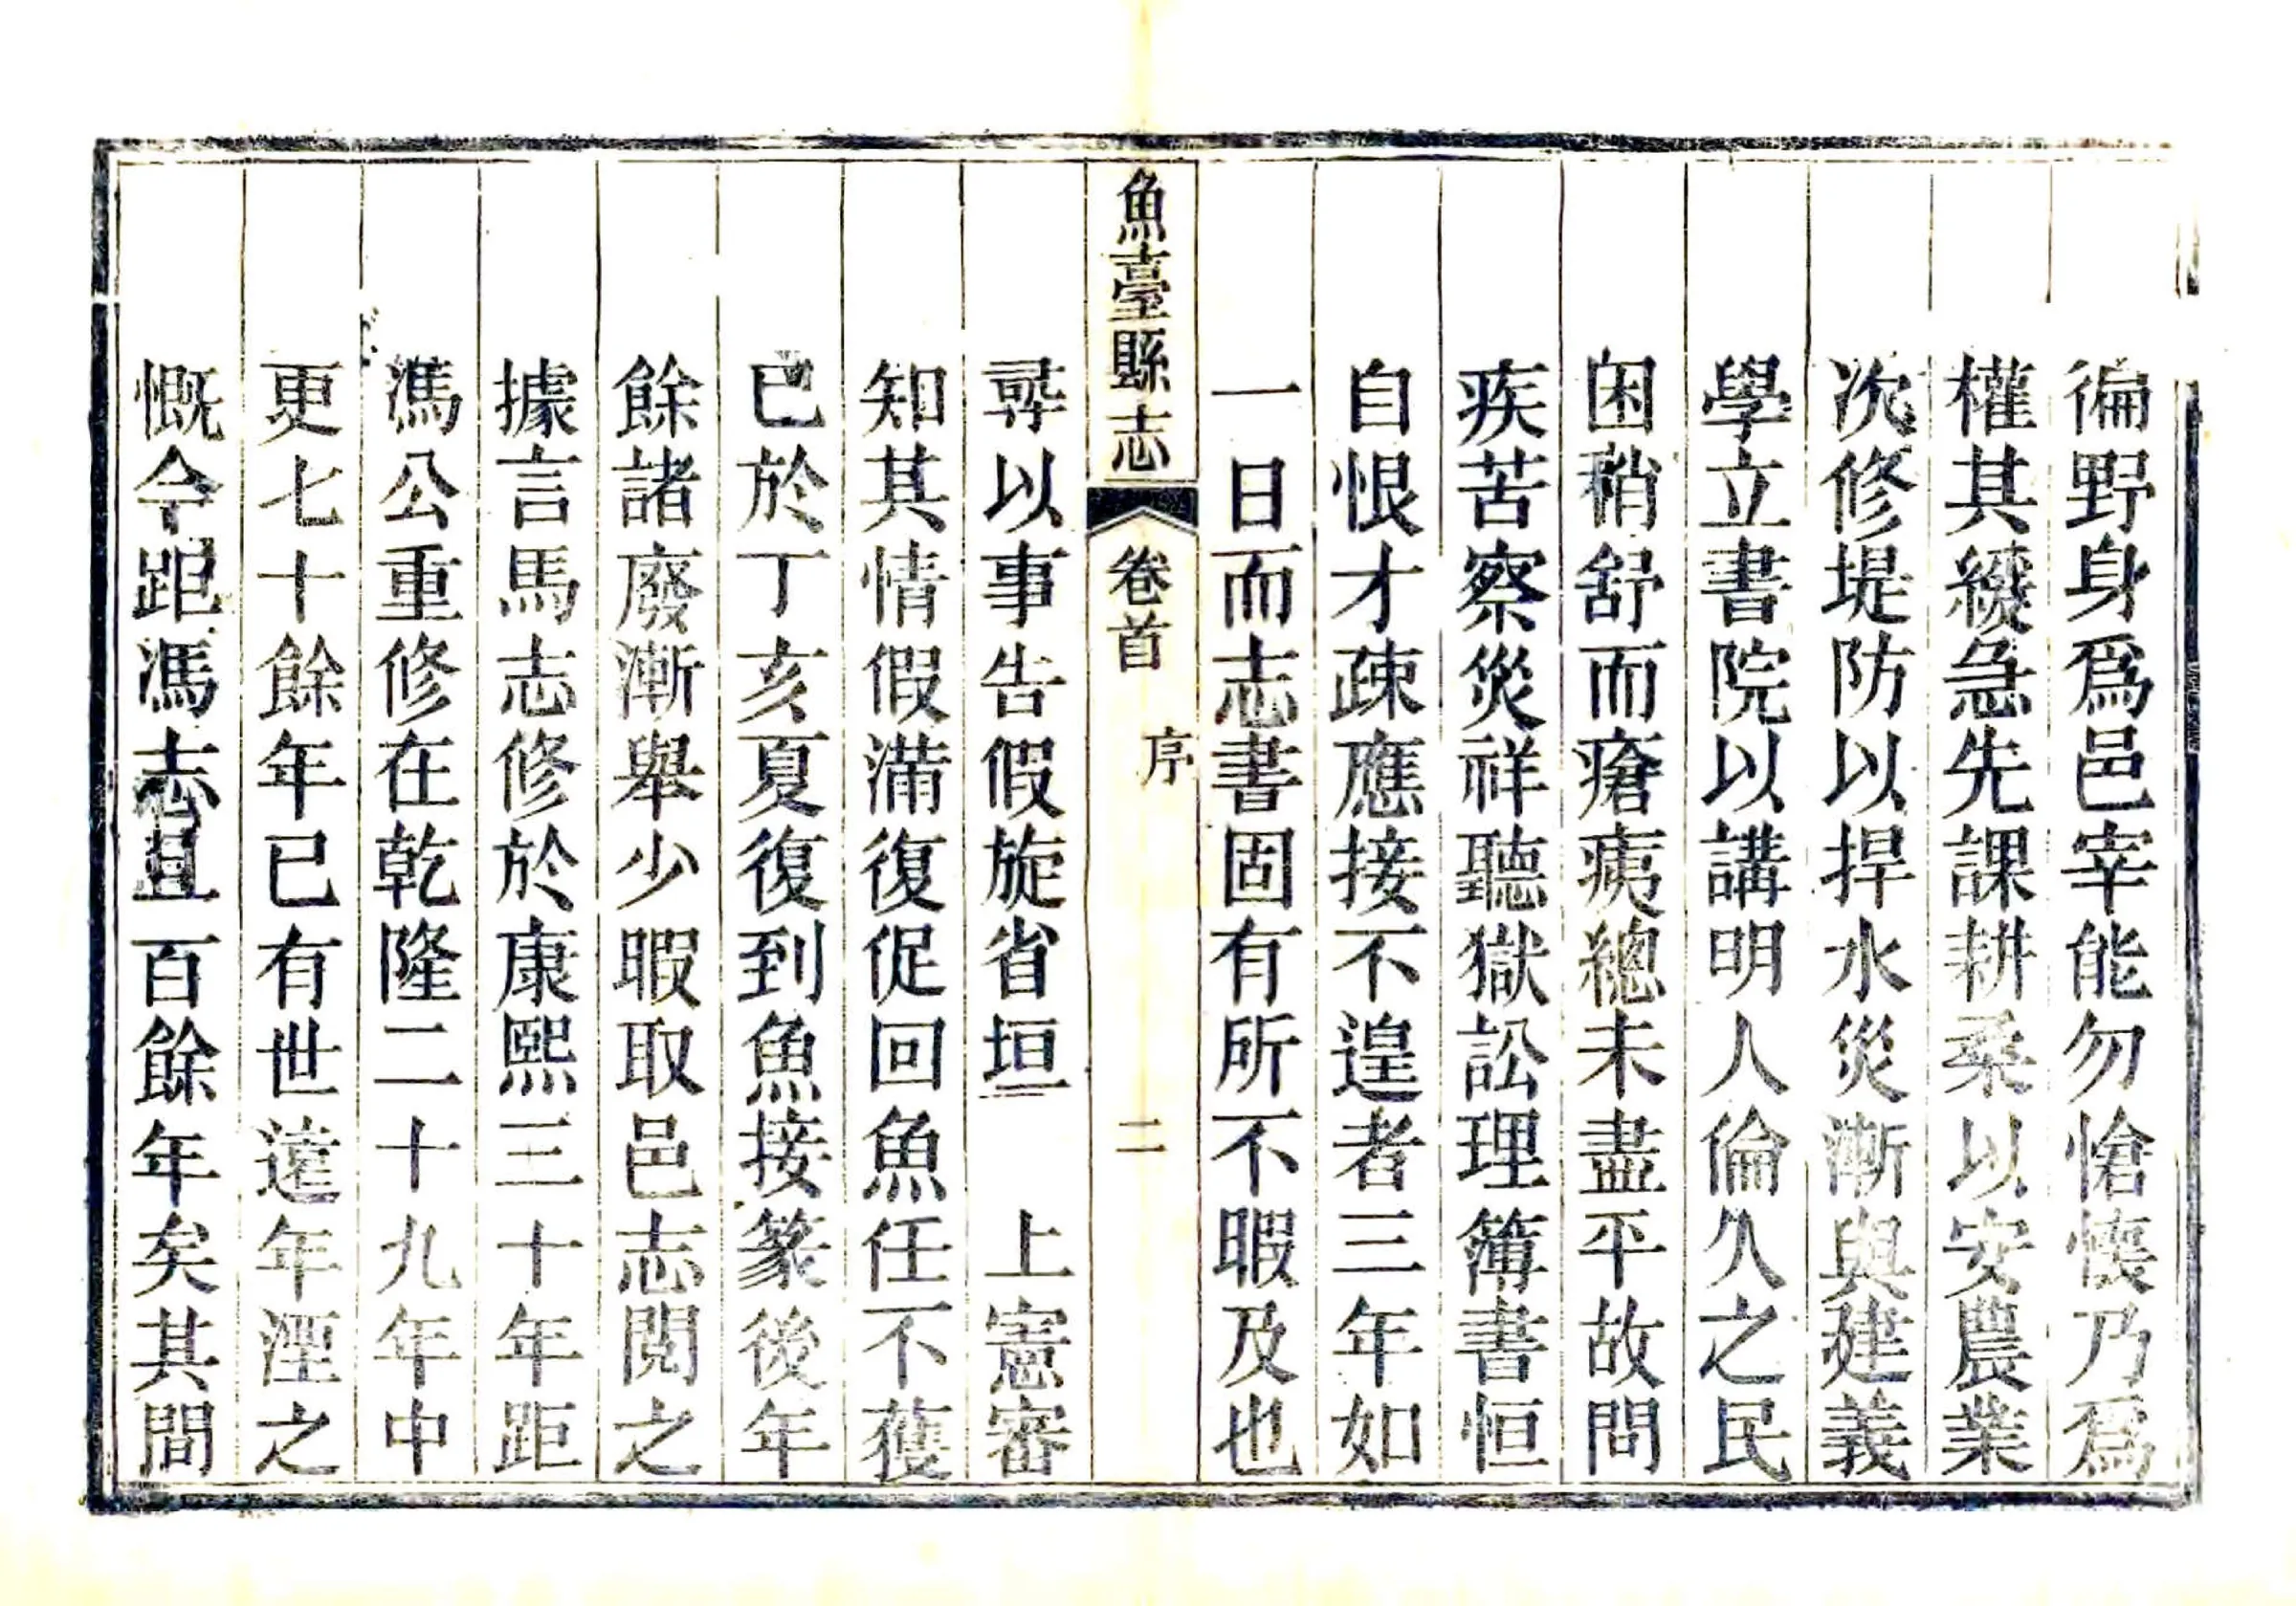 徧野身爲邑宰能勿愴懷乃爲
權其緩急先課耕桑以安農業
次修堤防以捍水災漸與建義
學立書院以講明人倫久之民
困稍舒而瘡痍總未盡平故問
疾苦察災祥聽獄訟理簿書恒
自恨才疎應接不遑者三年如
一日而志書固有所不暇及也
魚臺縣志
卷首
序
二
尋以事告假旋省垣　上憲審
知其情假滿復促回魚任不獲
已於丁亥夏復到魚接篆後年
餘諸廢漸舉少暇取邑志閱之
據言馬志修於康熙三十年距
馮公重修在乾隆二十九年中
更七十餘年已有世遠年湮之
慨今距馮志且百餘年矣其間